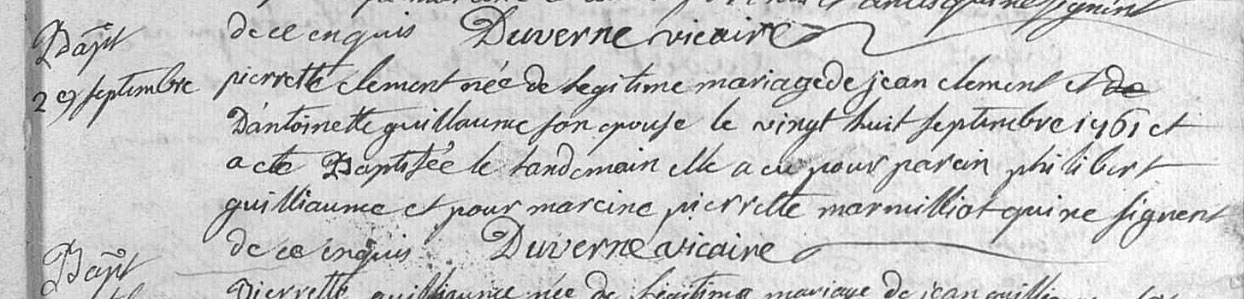 Bapt
de ce enquis Duverne vicaire
29 septembre
pierrette clement née de legitime mariage de jean clement et de
D'antoinette guillaume son epouse le vingt huit septembre 1761 et
a eté Baptisée le landemain elle a eu pour parain philibert
guilliaume et pour mareine pierrette marmilliot qui ne signent
de ce enquis Duverne vicaire
Bapt
Pierrette guilliaume née de legitime mariage de jean